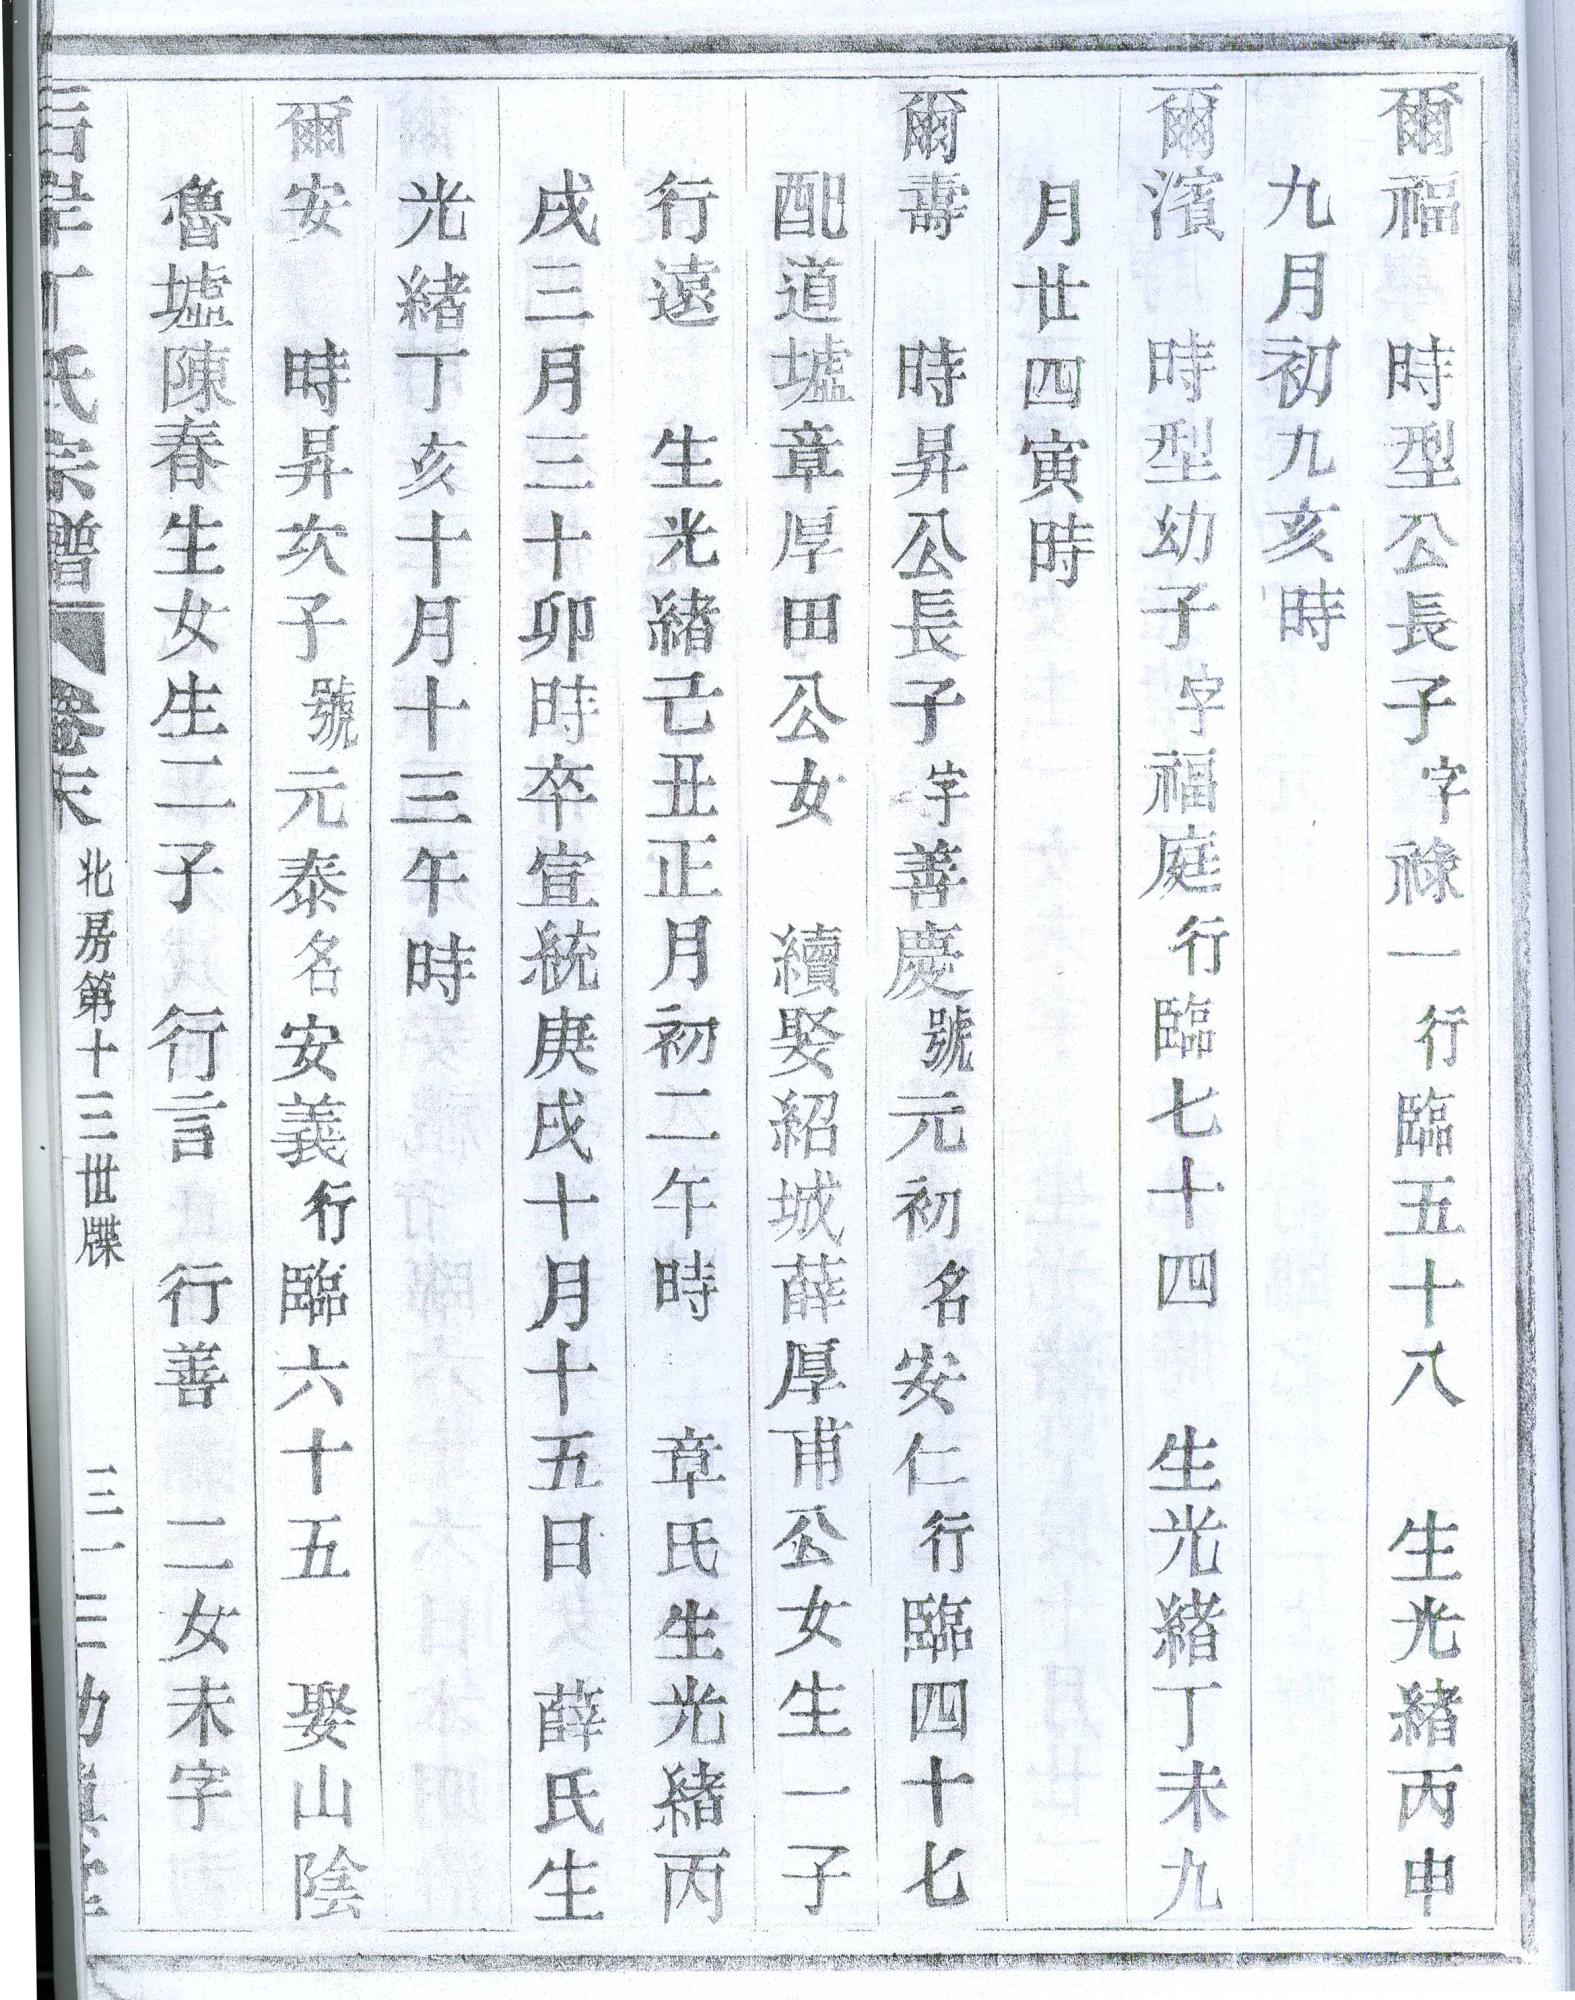 爾福　時型公長子字祿一行臨五十八　生光緒丙申
九月初九亥時
爾濱　時型幼子字福庭行臨七十四　生光緒丁未九
月廿四寅時
爾壽　時昇公長子字善慶號元初名安仁行臨四十七
配道墟章厚田公女　續娶紹城薛厚甫公女生一子
行遠　生光緒己丑正月初二午時　章氏生光緒丙
戌三月三十卯時卒宣統庚戌十月十五日　薛氏生
光緒丁亥十月十三午時
爾安　時昇次子號元泰名安義行臨六十五　娶山陰
魯墟陳春生女生二子　行言　行善　二女未字
丁氏宗譜　卷末　北房第十三世牒　三一三